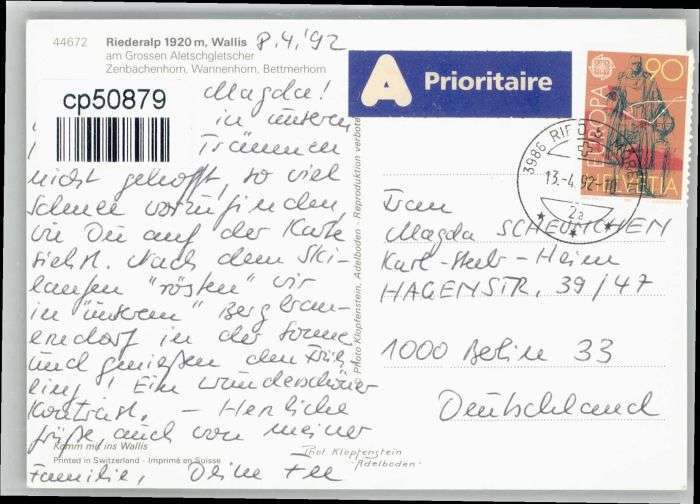 44672 Riederalp 1920 m, Wallis
am Grossen Aletschgletscher
Zenbächenhorn, Wannenhorn, Bettmerhorn
8.4.'92
A Prioritaire
90
EUROPA
HELVETIA
3986 RIED
13.-4.92-10
2a
cp50879
Magda!
in unseren
Träumen
nicht gehofft, so viel
Schnee vorzufinden,
wie Du auf der Karte
siehst. Nach dem Ski-
laufen "rösten" wir
in "unserem" Bergbau-
erndorf in der Sonne
und genießen den Früh-
ling! Ein wunderschöner
Kontrast. – Herzliche
Grüße, auch von meiner
Familie, Deine
Komm mit ins Wallis
Printed in Switzerland - Imprimé en Suisse
Photo Klopfenstein, Adelboden - Reproduktion verboten
Phot Klopfenstein
Adelboden
Frau
Magda SCHEUNCHEN
Heim
HAGENSTR. 39/47
1000 Berlin 33
Deutschland